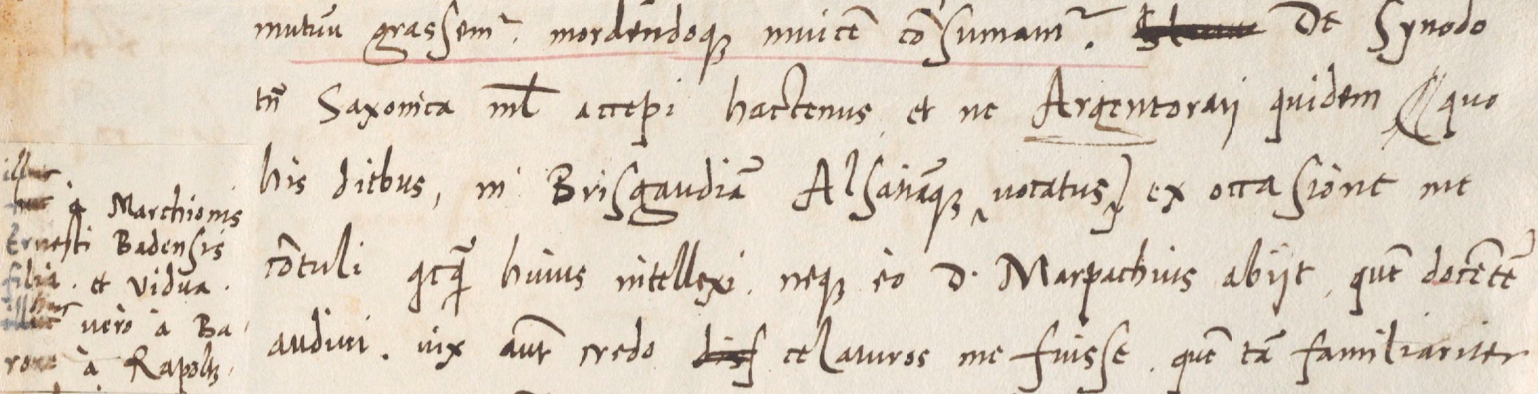 mutuū grassem̃. mordendoq́ȝ inuicē cōsumam̃. De Synodo
tñ Saxonica nil̄ accepi hactenus et ne Argentoraij quidem (quo
his diebus, in Brisgaudiā Alsatiāqȝ uocatus) ex occasione me
cōtuli qcq̄ huius intellexi. neqȝ eo D. Marpachius abijt, quē docētē
audiui. uix aūt credo celaturos me fuisse. quē tā familiariter
à Marchionis
Ernesti Badensis
filia. et vidua.
illinc uero à Ba
rone à Rapoltz.